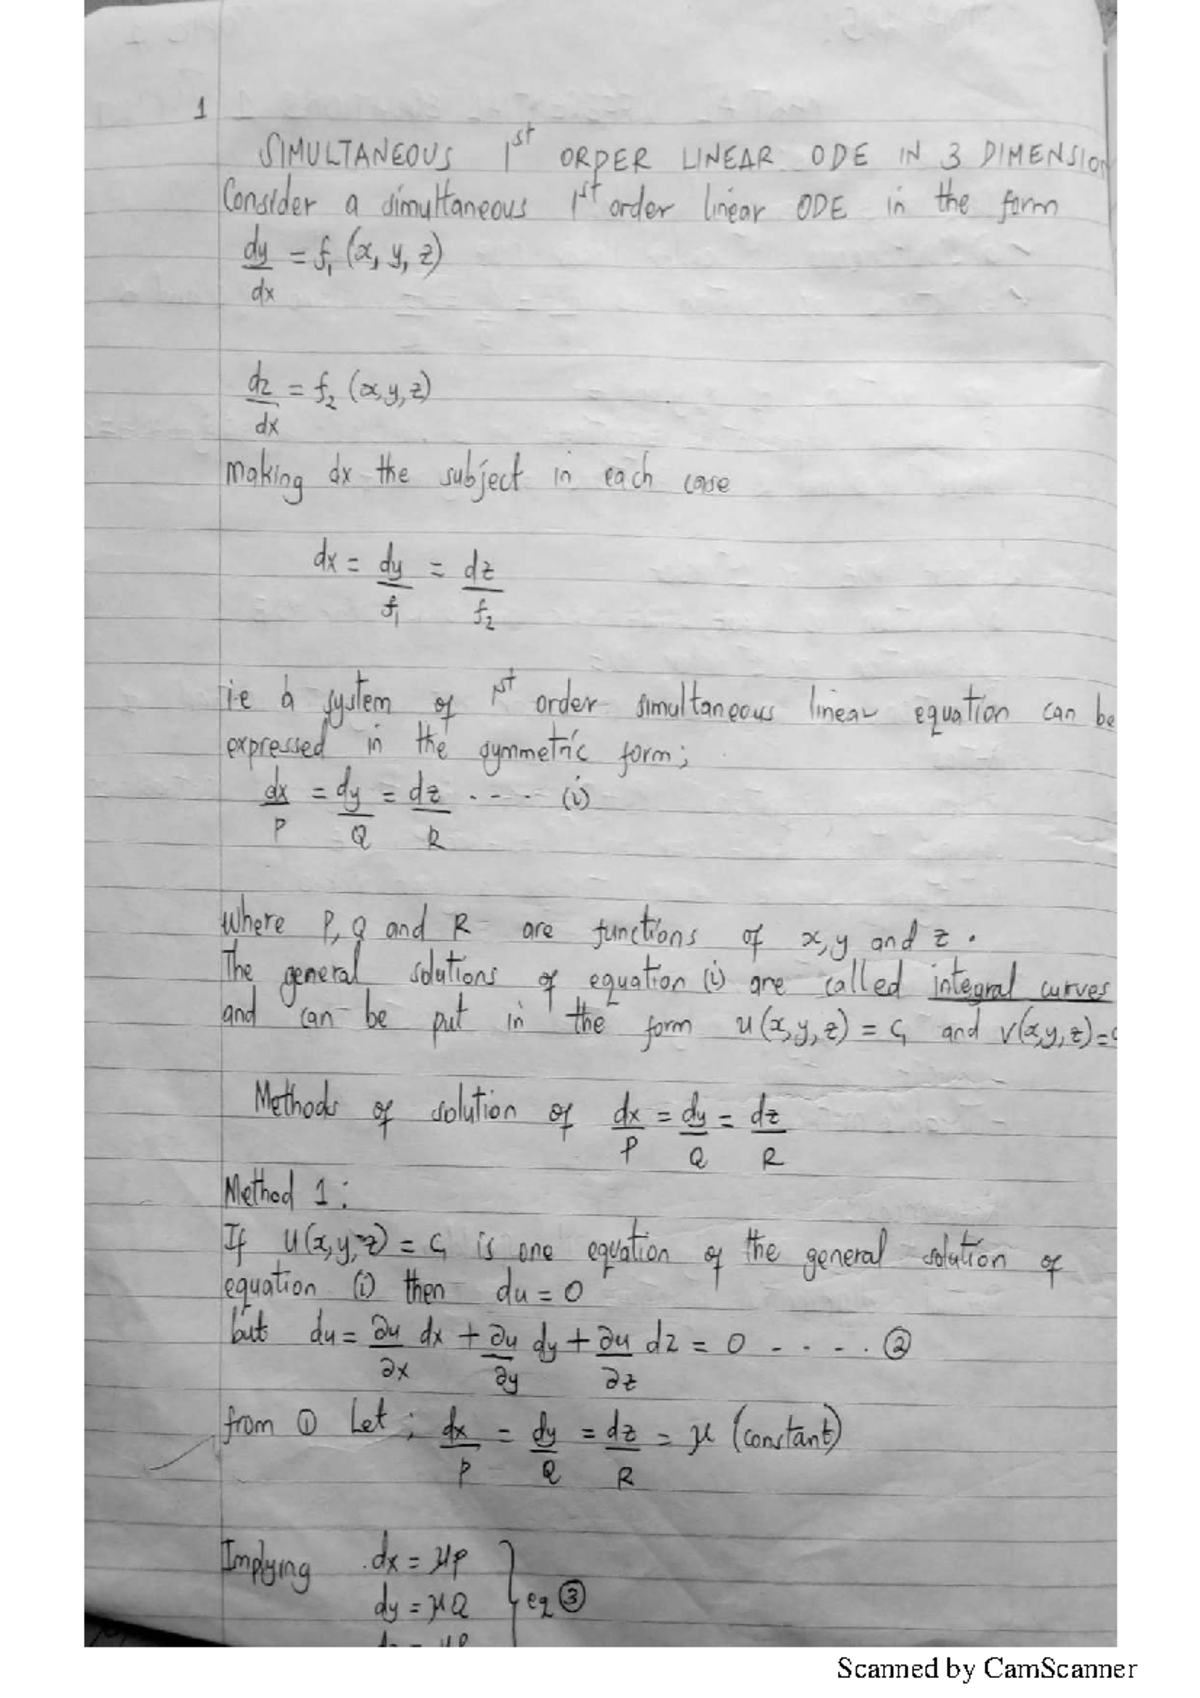 1
SIMULTANEOUS 1st ORDER LINEAR ODE IN 3 DIMENSION
Consider a simultaneous 1st order linear ODE in the form
dy/dx = f₁ (x, y, z)
dz/dx = f₂ (x, y, z)
making dx the subject in each case
dx = dy/f₁ = dz/f₂
i.e a system of 1st order simultaneous linear equation can be
expressed in the symmetric form;
dx/P = dy/Q = dz/R .--- (i)
where P, Q and R are functions of x, y and z.
The general solutions of equation (i) are called integral curves
and can be put in the form u(x, y, z) = C₁ and v(x, y, z) = c
Methods of solution of dx/P = dy/Q = dz/R
Method 1 :
If u(x, y, z) = C₁ is one equation of the general solution of
equation (i) then du = 0
but du = ∂u/∂x dx + ∂u/∂y dy + ∂u/∂z dz = 0 - - - . ②
from ① Let ; dx/P = dy/Q = dz/R = μ (constant)
Implying dx = μP
dy = μQ } eq ③
Scanned by CamScanner